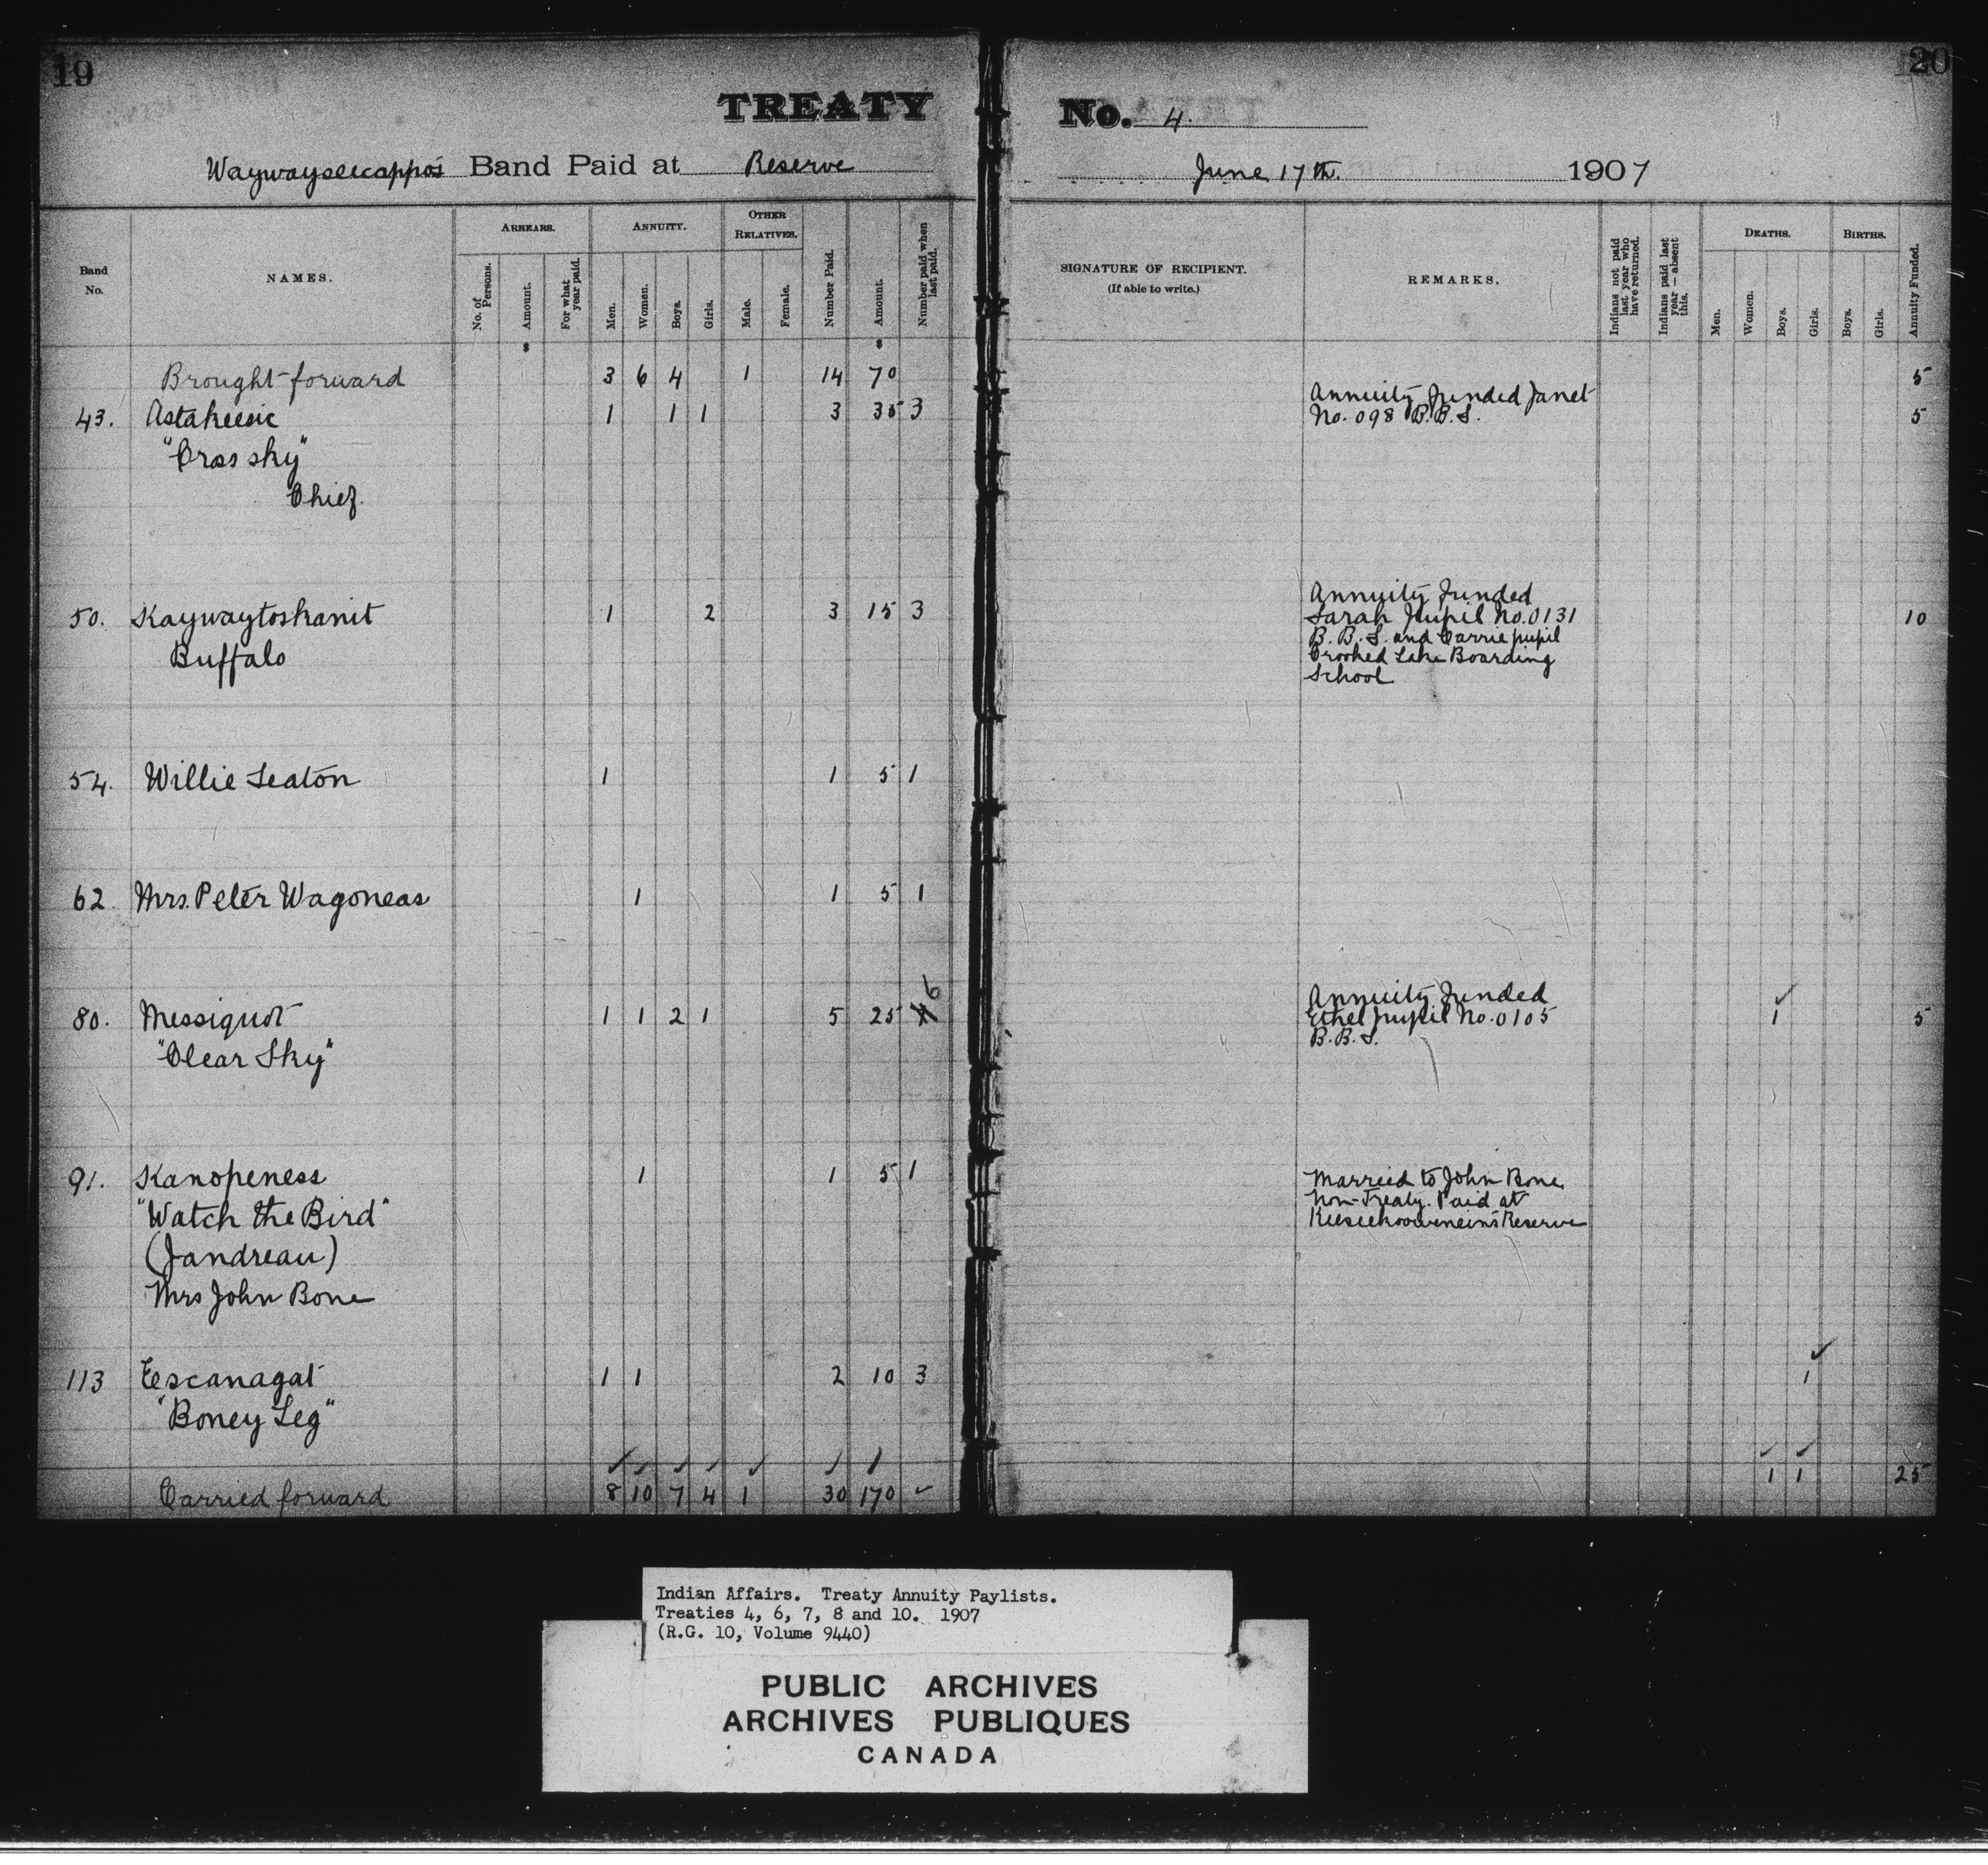 19
20
TREATY No. 4.
Waywayseecappo's Band Paid at Reserve June 17th. 1907
Band No.
NAMES.
ARREARS.
No. of Persons.
Amount.
For what year paid.
ANNUITY.
Men.
Women.
Boys.
Girls.
OTHER RELATIVES.
Male.
Female.
Number Paid.
Amount.
Number paid when last paid.
SIGNATURE OF RECIPIENT.
(If able to write.)
REMARKS.
Indians not paid last year who have returned.
Indians paid last year — absent this.
DEATHS.
Men.
Women.
Boys.
Girls.
BIRTHS.
Boys.
Girls.
Annuity Funded.
$ $
Brought forward 3 6 4 1 14 70 5
43. Astakeesic 1 1 1 3 35 3 Annuity Funded Janet
No. 098 B.B.S. 5
"Cross sky"
Chief.
50. Kaywaytoskanit 1 2 3 15 3 Annuity Funded
Sarah Pupil No. 0131 10
Buffalo B.B.S. and Carrie pupil
Crooked Lake Boarding
School
54. Willie Seaton 1 1 5 1
62 Mrs. Peter Wagoneas 1 1 5 1
80. Messiquot 1 1 2 1 5 25 6 Annuity Funded
Ethel pupil No. 0105 1 5
"Clear Sky" B.B.S.
91. Kanopeness 1 1 5 1 Married to John Bone
"Watch the Bird" Non-Treaty. Paid at
Keeseekoowenein's Reserve
(Jandreau)
Mrs John Bone
113 Eescanagat 1 1 2 10 3 1
"Boney Leg"
Carried forward 8 10 7 4 1 30 170 1 1 25
Indian Affairs. Treaty Annuity Paylists.
Treaties 4, 6, 7, 8 and 10. 1907
(R.G. 10, Volume 9440)
PUBLIC ARCHIVES
ARCHIVES PUBLIQUES
CANADA